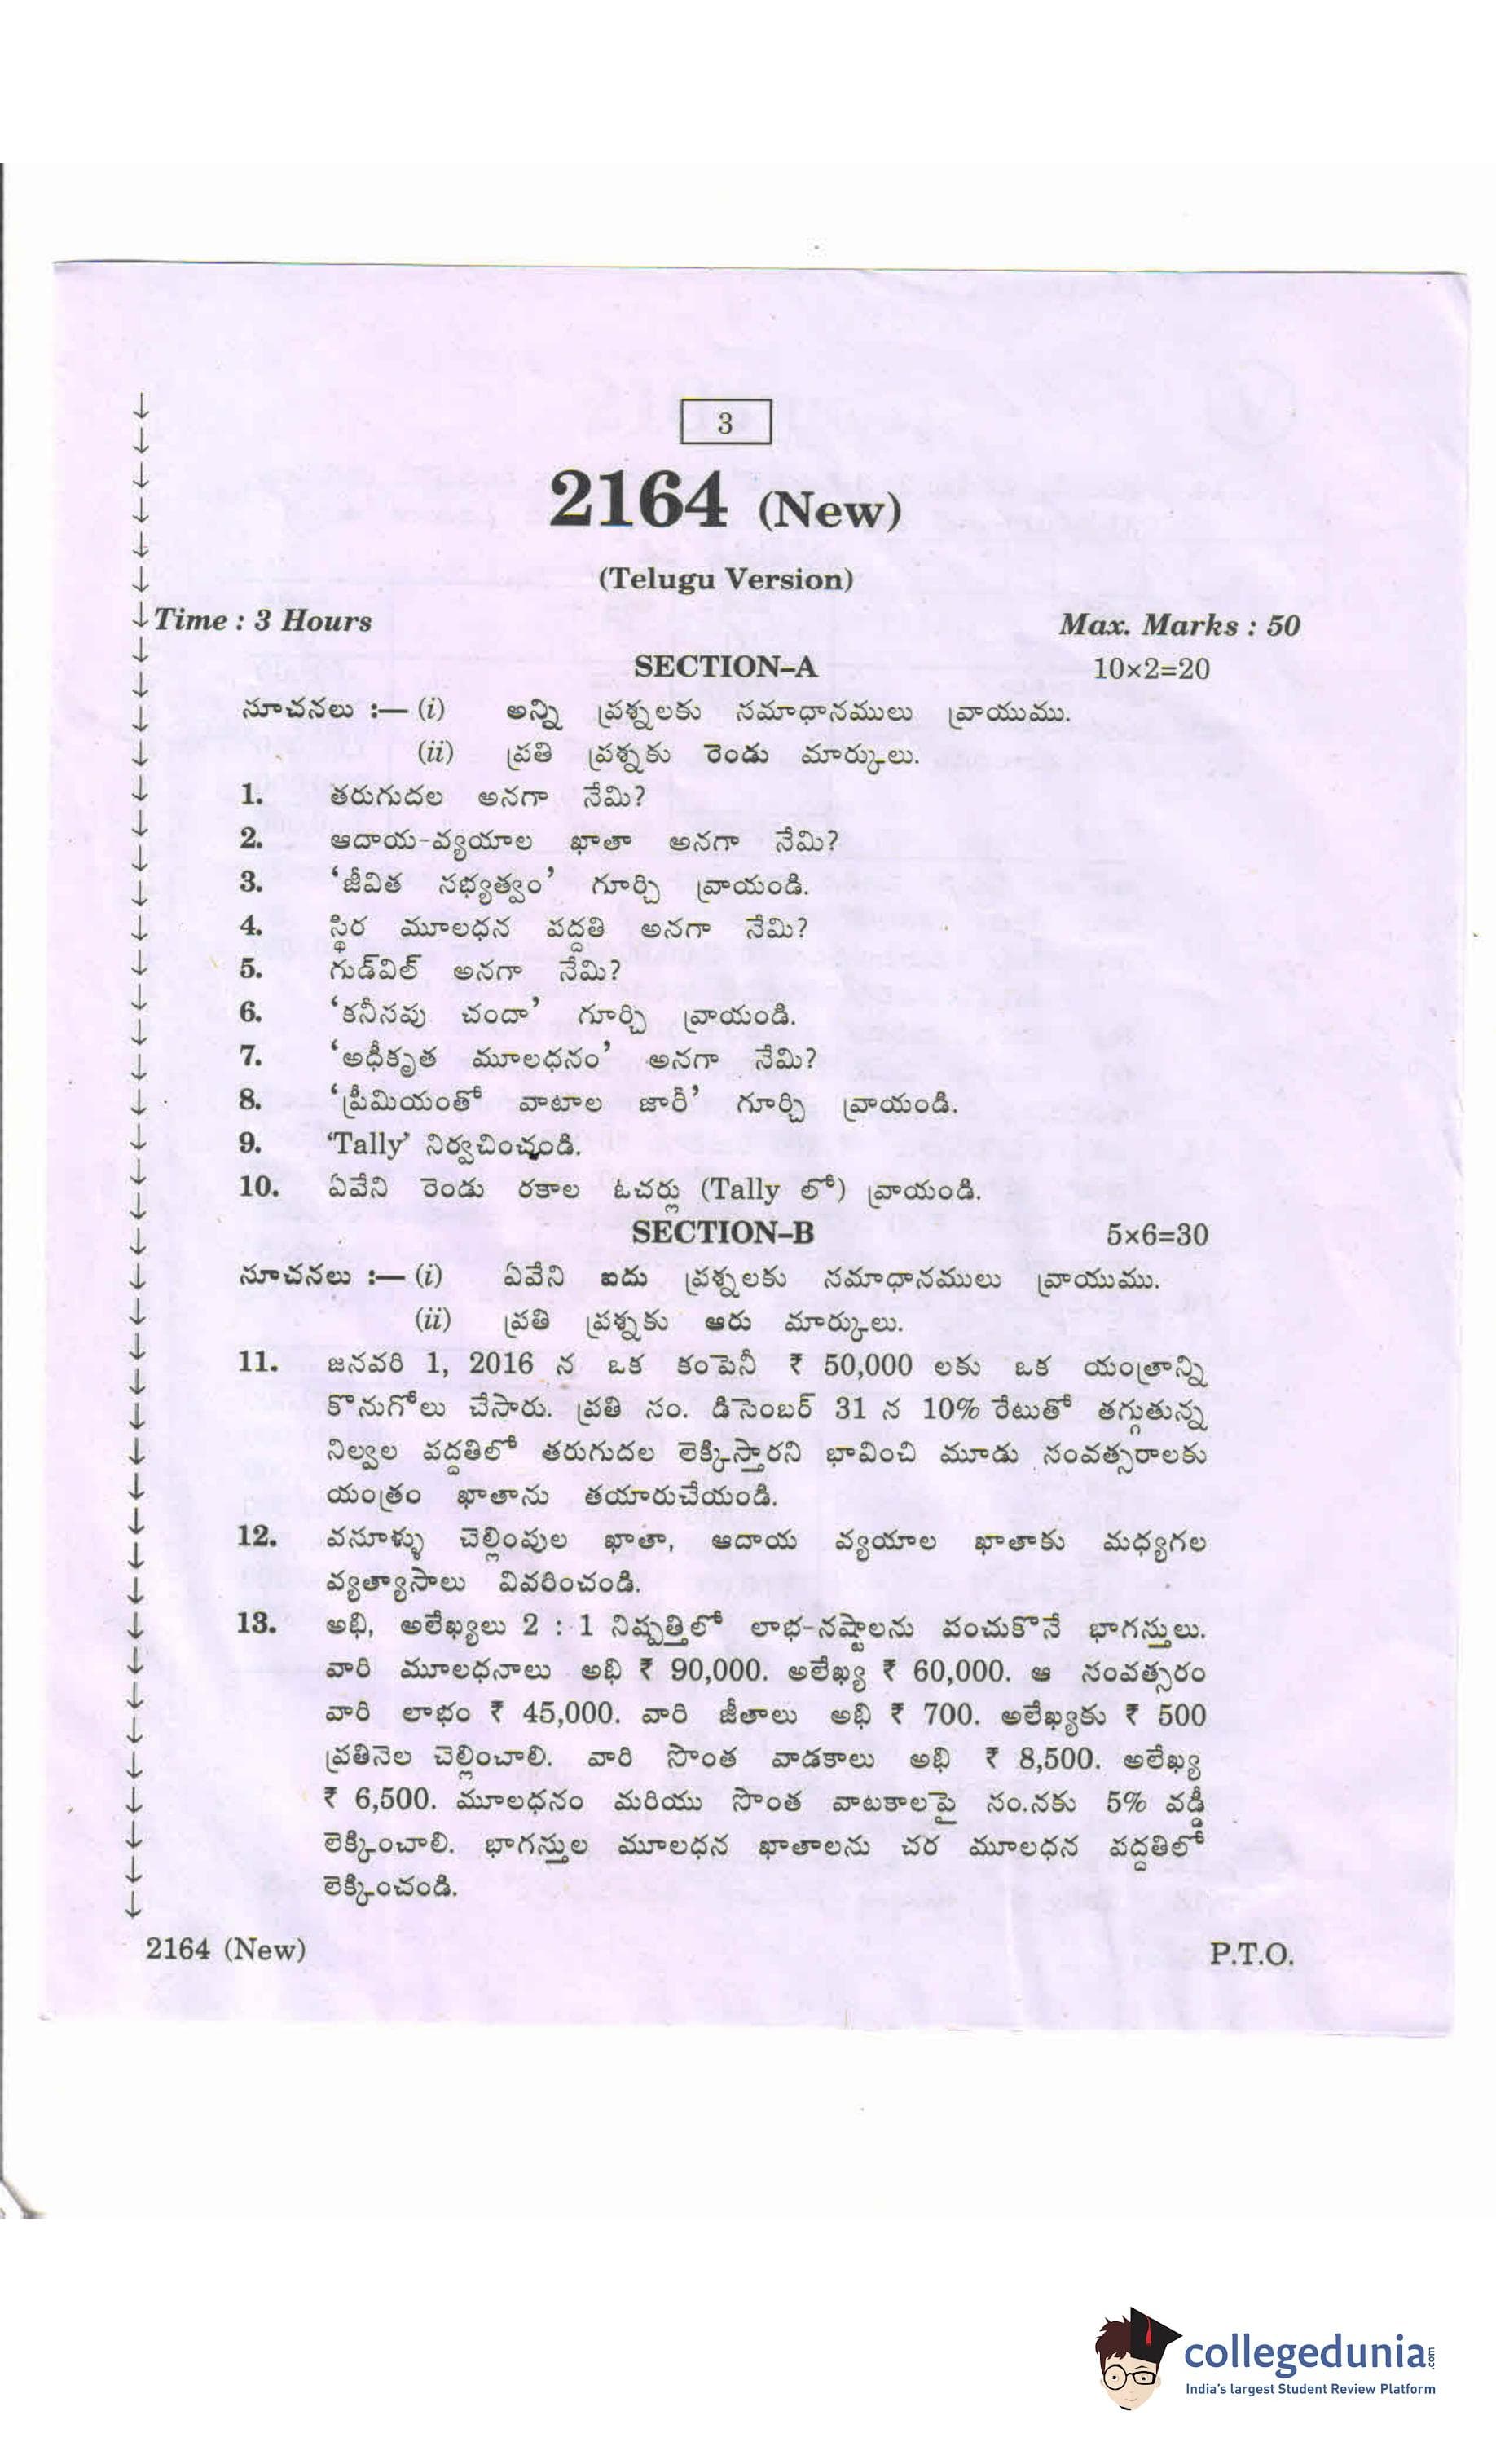 3
2164 (New)
(Telugu Version)
Time : 3 Hours Max. Marks : 50
SECTION–A 10×2=20
సూచనలు :— (i) అన్ని ప్రశ్నలకు సమాధానములు వ్రాయుము.
(ii) ప్రతి ప్రశ్నకు రెండు మార్కులు.
1. తరుగుదల అనగా నేమి?
2. ఆదాయ-వ్యయాల ఖాతా అనగా నేమి?
3. ‘జీవిత సభ్యత్వం’ గూర్చి వ్రాయండి.
4. స్థిర మూలధన పద్ధతి అనగా నేమి?
5. గుడ్‌విల్ అనగా నేమి?
6. ‘కనీసపు చందా’ గూర్చి వ్రాయండి.
7. ‘అధీకృత మూలధనం’ అనగా నేమి?
8. ‘ప్రీమియంతో వాటాల జారీ’ గూర్చి వ్రాయండి.
9. ‘Tally’ నిర్వచించండి.
10. ఏవేని రెండు రకాల ఓచర్లు (Tally లో) వ్రాయండి.
SECTION–B 5×6=30
సూచనలు :— (i) ఏవేని ఐదు ప్రశ్నలకు సమాధానములు వ్రాయుము.
(ii) ప్రతి ప్రశ్నకు ఆరు మార్కులు.
11. జనవరి 1, 2016 న ఒక కంపెనీ ₹ 50,000 లకు ఒక యంత్రాన్ని
కొనుగోలు చేసారు. ప్రతి సం. డిసెంబర్ 31 న 10% రేటుతో తగ్గుతున్న
నిల్వల పద్ధతిలో తరుగుదల లెక్కిస్తారని భావించి మూడు సంవత్సరాలకు
యంత్రం ఖాతాను తయారుచేయండి.
12. వసూళ్ళు చెల్లింపుల ఖాతా, ఆదాయ వ్యయాల ఖాతాకు మధ్యగల
వ్యత్యాసాలు వివరించండి.
13. అభి, అలేఖ్యలు 2 : 1 నిష్పత్తిలో లాభ-నష్టాలను పంచుకొనే భాగస్తులు.
వారి మూలధనాలు అభి ₹ 90,000. అలేఖ్య ₹ 60,000. ఆ సంవత్సరం
వారి లాభం ₹ 45,000. వారి జీతాలు అభి ₹ 700. అలేఖ్యకు ₹ 500
ప్రతినెల చెల్లించాలి. వారి సొంత వాడకాలు అభి ₹ 8,500. అలేఖ్య
₹ 6,500. మూలధనం మరియు సొంత వాటకాలపై సం.నకు 5% వడ్డీ
లెక్కించాలి. భాగస్తుల మూలధన ఖాతాలను చర మూలధన పద్ధతిలో
లెక్కించండి.
2164 (New) P.T.O.
collegedunia.com
India's largest Student Review Platform